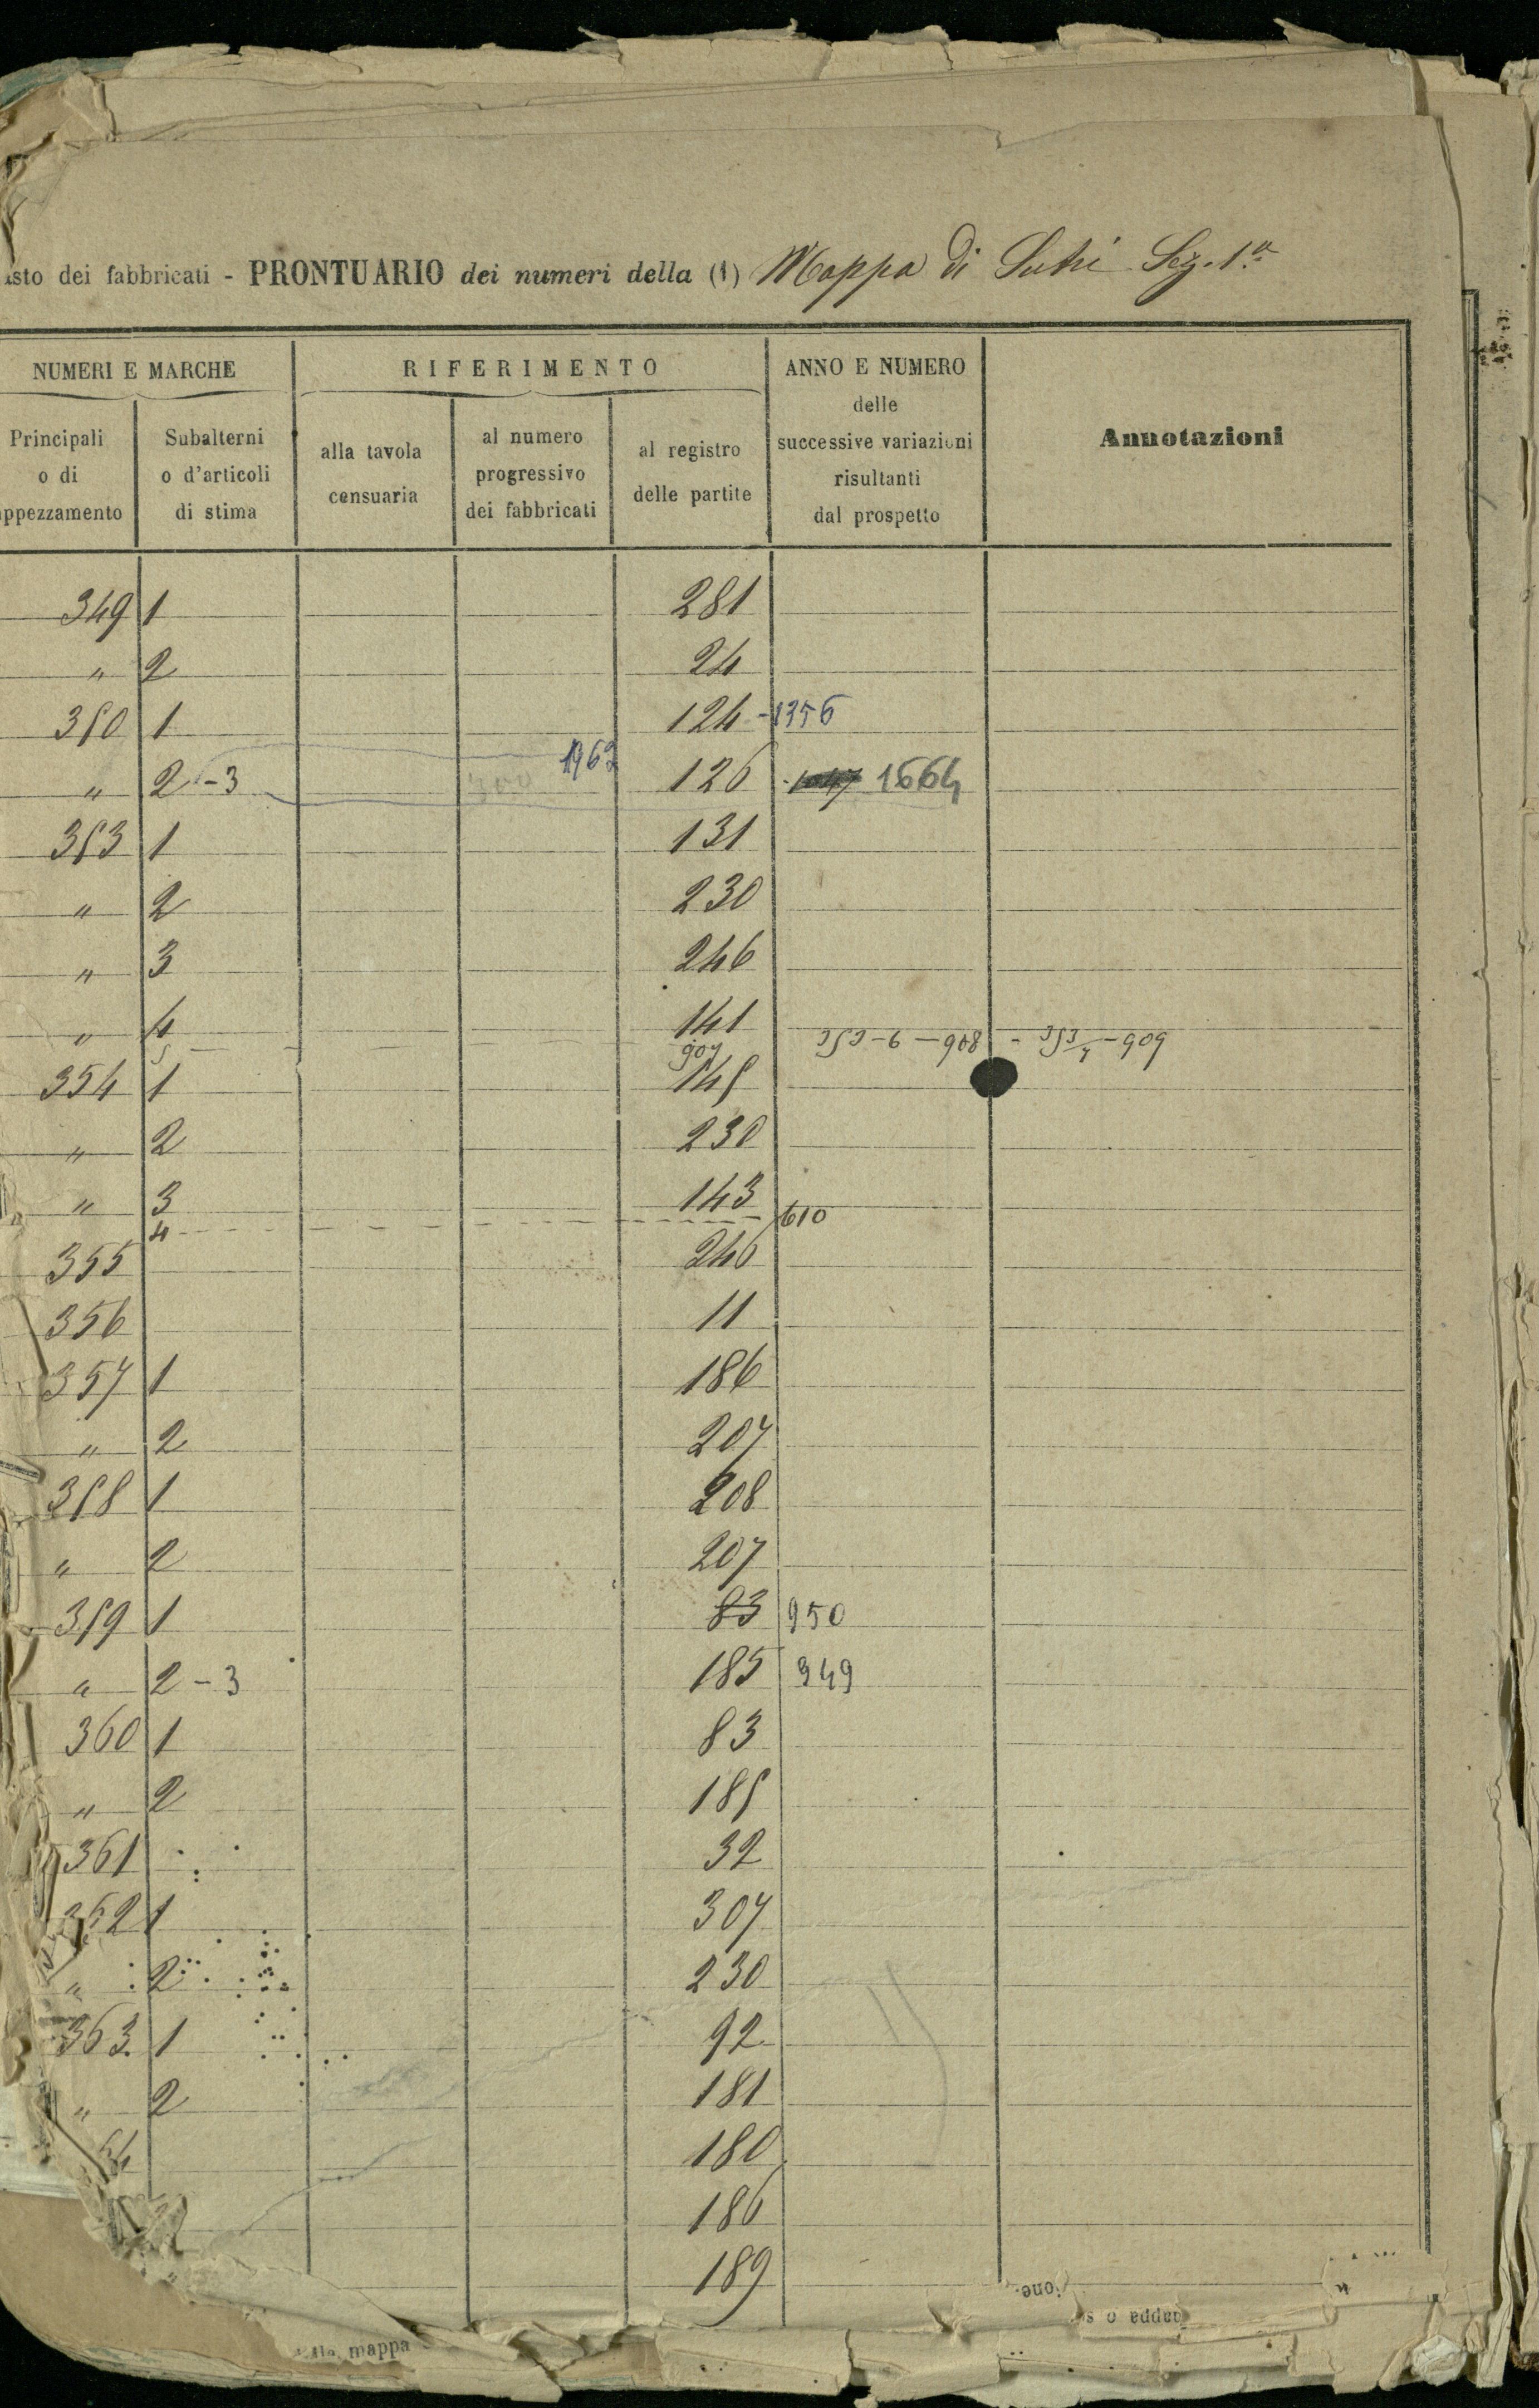 sto dei fabbricati - PRONTUARIO dei numeri della (1) Mappa di Sutri Sez. 1.a
NUMERI E MARCHE RIFERIMENTO ANNO E NUMERO delle successive variazioni risultanti dal prospetto Annotazioni
Principali o di appezzamento Subalterni o d'articoli di stima alla tavola censuaria al numero progressivo dei fabbricati al registro delle partite
349 1 281
" 2 24
350 1 124 - 1356
" 2 - 3 300 1962 126 1664
353 1 131
" 2 230
" 3 246
" 4 141
5 907
354 1 145
" 2 230
" 3 143
4 610
355 246
356 11
357 1 186
" 2 207
358 1 208
" 2 207
359 1 83 950
" 2 - 3 185 949
360 1 83
" 2 185
361 32
362 1 307
" 2 230
363. 1 92
" 2 181
64 180
186
189
mappa
ione.
appa o s